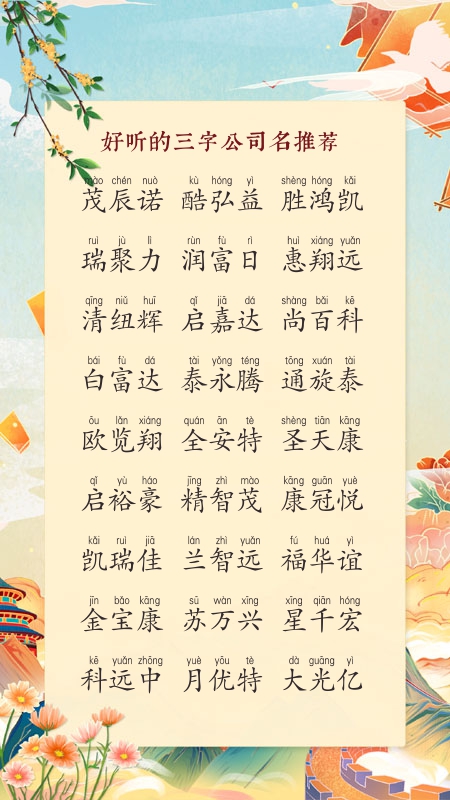 好听的三字公司名推荐
mào chén nuò kù hóng yì shèng hóng kǎi
茂辰诺 酷弘益 胜鸿凯
ruì jù lì rùn fù rì huì xiáng yuǎn
瑞聚力 润富日 惠翔远
qīng niǔ huī qǐ jiā dá shàng bǎi kē
清纽辉 启嘉达 尚百科
bái fù dá tài yǒng téng tōng xuán tài
白富达 泰永腾 通旋泰
ōu lǎn xiáng quán ān tè shèng tiān kāng
欧览翔 全安特 圣天康
qǐ yù háo jīng zhì mào kāng guān yuè
启裕豪 精智茂 康冠悦
kǎi ruì jiā lán zhì yuǎn fú huá yì
凯瑞佳 兰智远 福华谊
jīn bǎo kāng sū wàn xīng xīng qiān hóng
金宝康 苏万兴 星千宏
kē yuǎn zhōng yuè yōu tè dà guāng yì
科远中 月优特 大光亿